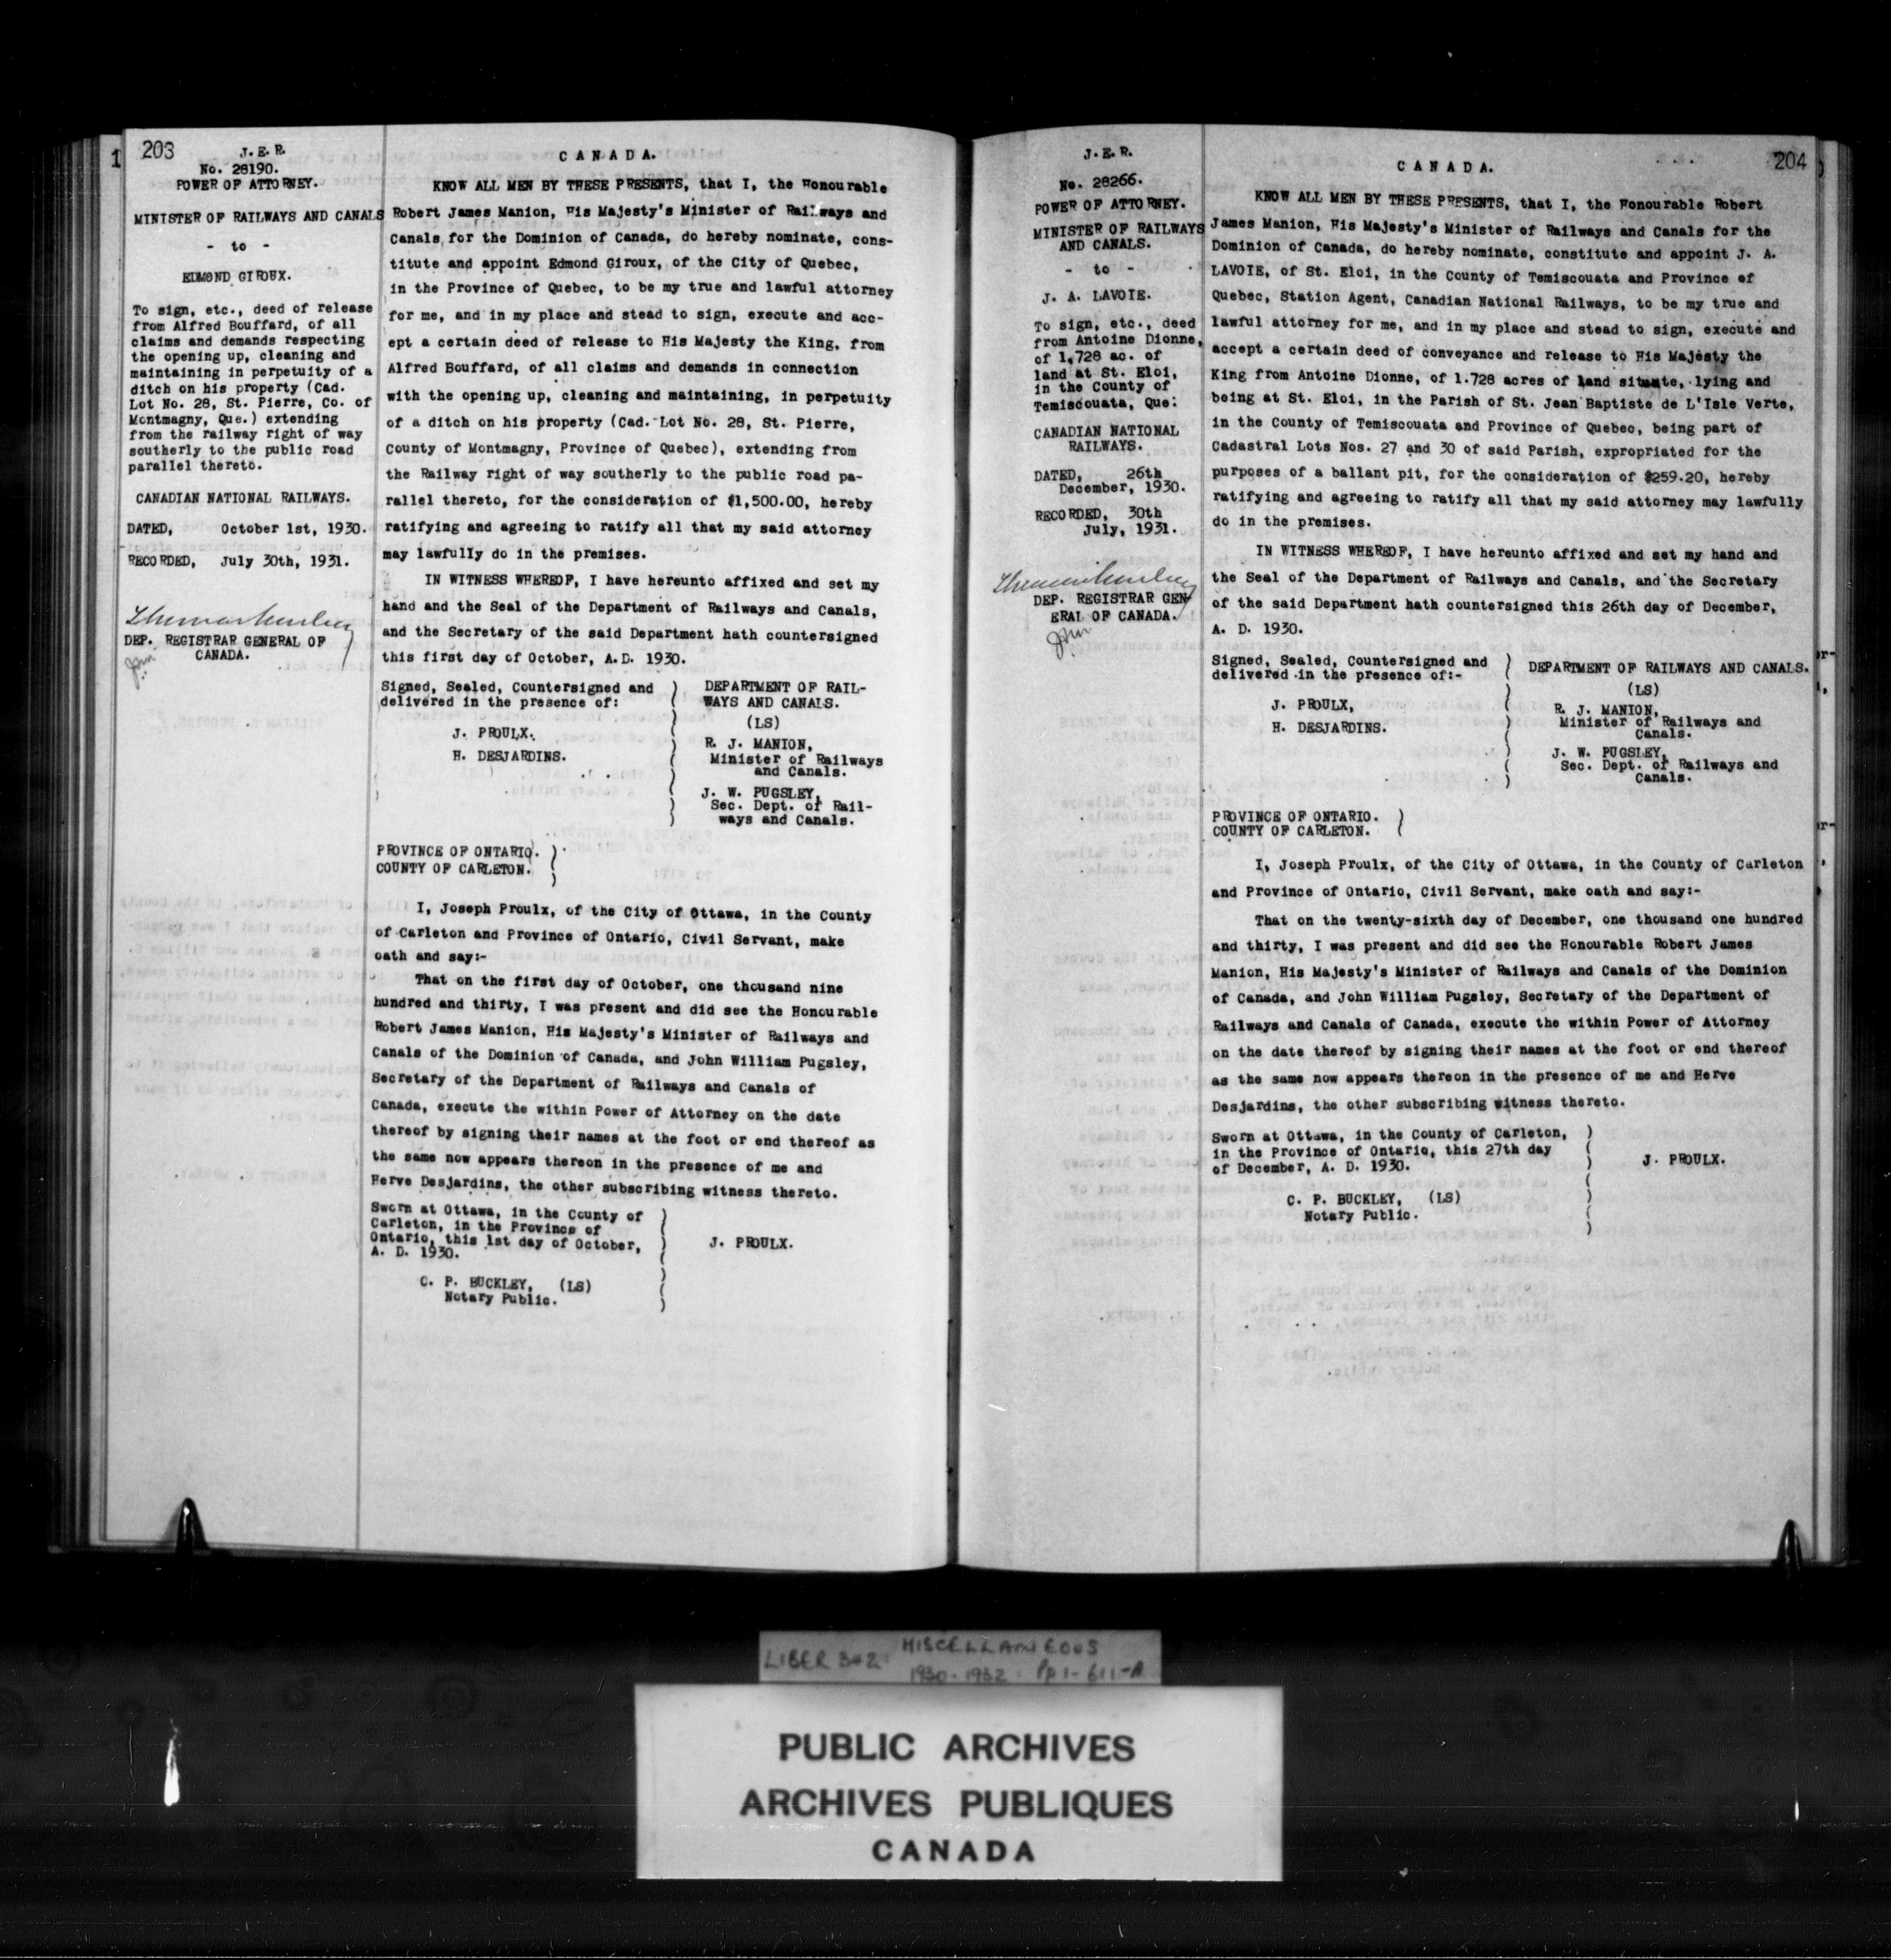 203
J. E. R.
No. 28190.
POWER OF ATTORNEY.
MINISTER OF RAILWAYS AND CANALS
- to -
EDMOND GIROUX.
To sign, etc., deed of release
from Alfred Bouffard, of all
claims and demands respecting
the opening up, cleaning and
maintaining in perpetuity of a
ditch on his property (Cad.
Lot No. 28, St. Pierre, Co. of
Montmagny, Que.) extending
from the railway right of way
southerly to the public road
parallel thereto.
CANADIAN NATIONAL RAILWAYS.
DATED, October 1st, 1930.
RECORDED, July 30th, 1931.
DEP. REGISTRAR GENERAL OF
CANADA.
CANADA.
KNOW ALL MEN BY THESE PRESENTS, that I, the Honourable
Robert James Manion, His Majesty's Minister of Railways and
Canals for the Dominion of Canada, do hereby nominate, cons-
titute and appoint Edmond Giroux, of the City of Quebec,
in the Province of Quebec, to be my true and lawful attorney
for me, and in my place and stead to sign, execute and acc-
ept a certain deed of release to His Majesty the King, from
Alfred Bouffard, of all claims and demands in connection
with the opening up, cleaning and maintaining, in perpetuity
of a ditch on his property (Cad. Lot No. 28, St. Pierre,
County of Montmagny, Province of Quebec), extending from
the Railway right of way southerly to the public road pa-
rallel thereto, for the consideration of $1,500.00, hereby
ratifying and agreeing to ratify all that my said attorney
may lawfully do in the premises.
IN WITNESS WHEREOF, I have hereunto affixed and set my
hand and the Seal of the Department of Railways and Canals,
and the Secretary of the said Department hath countersigned
this first day of October, A.D. 1930.
Signed, Sealed, Countersigned and
delivered in the presence of:
J. PROULX.
H. DESJARDINS.
DEPARTMENT OF RAIL-
WAYS AND CANALS.
(LS)
R. J. MANION,
Minister of Railways
and Canals.
J. W. PUGSLEY,
Sec. Dept. of Rail-
ways and Canals.
PROVINCE OF ONTARIO.
COUNTY OF CARLETON.
I, Joseph Proulx, of the City of Ottawa, in the County
of Carleton and Province of Ontario, Civil Servant, make
oath and say:-
That on the first day of October, one thousand nine
hundred and thirty, I was present and did see the Honourable
Robert James Manion, His Majesty's Minister of Railways and
Canals of the Dominion of Canada, and John William Pugsley,
Secretary of the Department of Railways and Canals of
Canada, execute the within Power of Attorney on the date
thereof by signing their names at the foot or end thereof as
the same now appears thereon in the presence of me and
Herve Desjardins, the other subscribing witness thereto.
Sworn at Ottawa, in the County of
Carleton, in the Province of
Ontario, this 1st day of October,
A. D. 1930.
J. PROULX.
C. P. BUCKLEY, (LS)
Notary Public.
204
J. E. R.
No. 28266.
POWER OF ATTORNEY.
MINISTER OF RAILWAYS
AND CANALS.
- to -
J. A. LAVOIE.
To sign, etc., deed
from Antoine Dionne,
of 1,728 ac. of
land at St. Eloi,
in the County of
Temiscouata, Que.
CANADIAN NATIONAL
RAILWAYS.
DATED, 26th
December, 1930.
RECORDED, 30th
July, 1931.
DEP. REGISTRAR GEN-
ERAL OF CANADA.
CANADA.
KNOW ALL MEN BY THESE PRESENTS, that I, the Honourable Robert
James Manion, His Majesty's Minister of Railways and Canals for the
Dominion of Canada, do hereby nominate, constitute and appoint J. A.
LAVOIE, of St. Eloi, in the County of Temiscouata and Province of
Quebec, Station Agent, Canadian National Railways, to be my true and
lawful attorney for me, and in my place and stead to sign, execute and
accept a certain deed of conveyance and release to His Majesty the
King from Antoine Dionne, of 1.728 acres of land situate, lying and
being at St. Eloi, in the Parish of St. Jean Baptiste de L'Isle Verte,
in the County of Temiscouata and Province of Quebec, being part of
Cadastral Lots Nos. 27 and 30 of said Parish, expropriated for the
purposes of a ballant pit, for the consideration of $259.20, hereby
ratifying and agreeing to ratify all that my said attorney may lawfully
do in the premises.
IN WITNESS WHEREOF, I have hereunto affixed and set my hand and
the Seal of the Department of Railways and Canals, and the Secretary
of the said Department hath countersigned this 26th day of December,
A. D. 1930.
Signed, Sealed, Countersigned and
delivered in the presence of:-
J. PROULX,
H. DESJARDINS.
DEPARTMENT OF RAILWAYS AND CANALS.
(LS)
R. J. MANION,
Minister of Railways and
Canals.
J. W. PUGSLEY,
Sec. Dept. of Railways and
Canals.
PROVINCE OF ONTARIO.
COUNTY OF CARLETON.
I, Joseph Proulx, of the City of Ottawa, in the County of Carleton
and Province of Ontario, Civil Servant, make oath and say:-
That on the twenty-sixth day of December, one thousand one hundred
and thirty, I was present and did see the Honourable Robert James
Manion, His Majesty's Minister of Railways and Canals of the Dominion
of Canada, and John William Pugsley, Secretary of the Department of
Railways and Canals of Canada, execute the within Power of Attorney
on the date thereof by signing their names at the foot or end thereof
as the same now appears thereon in the presence of me and Herve
Desjardins, the other subscribing witness thereto.
Sworn at Ottawa, in the County of Carleton,
in the Province of Ontario, this 27th day
of December, A. D. 1930.
J. PROULX.
C. P. BUCKLEY, (LS)
Notary Public.
LIBER 342: MISCELLANEOUS
1930-1932: Pp 1-611-A
PUBLIC ARCHIVES
ARCHIVES PUBLIQUES
CANADA